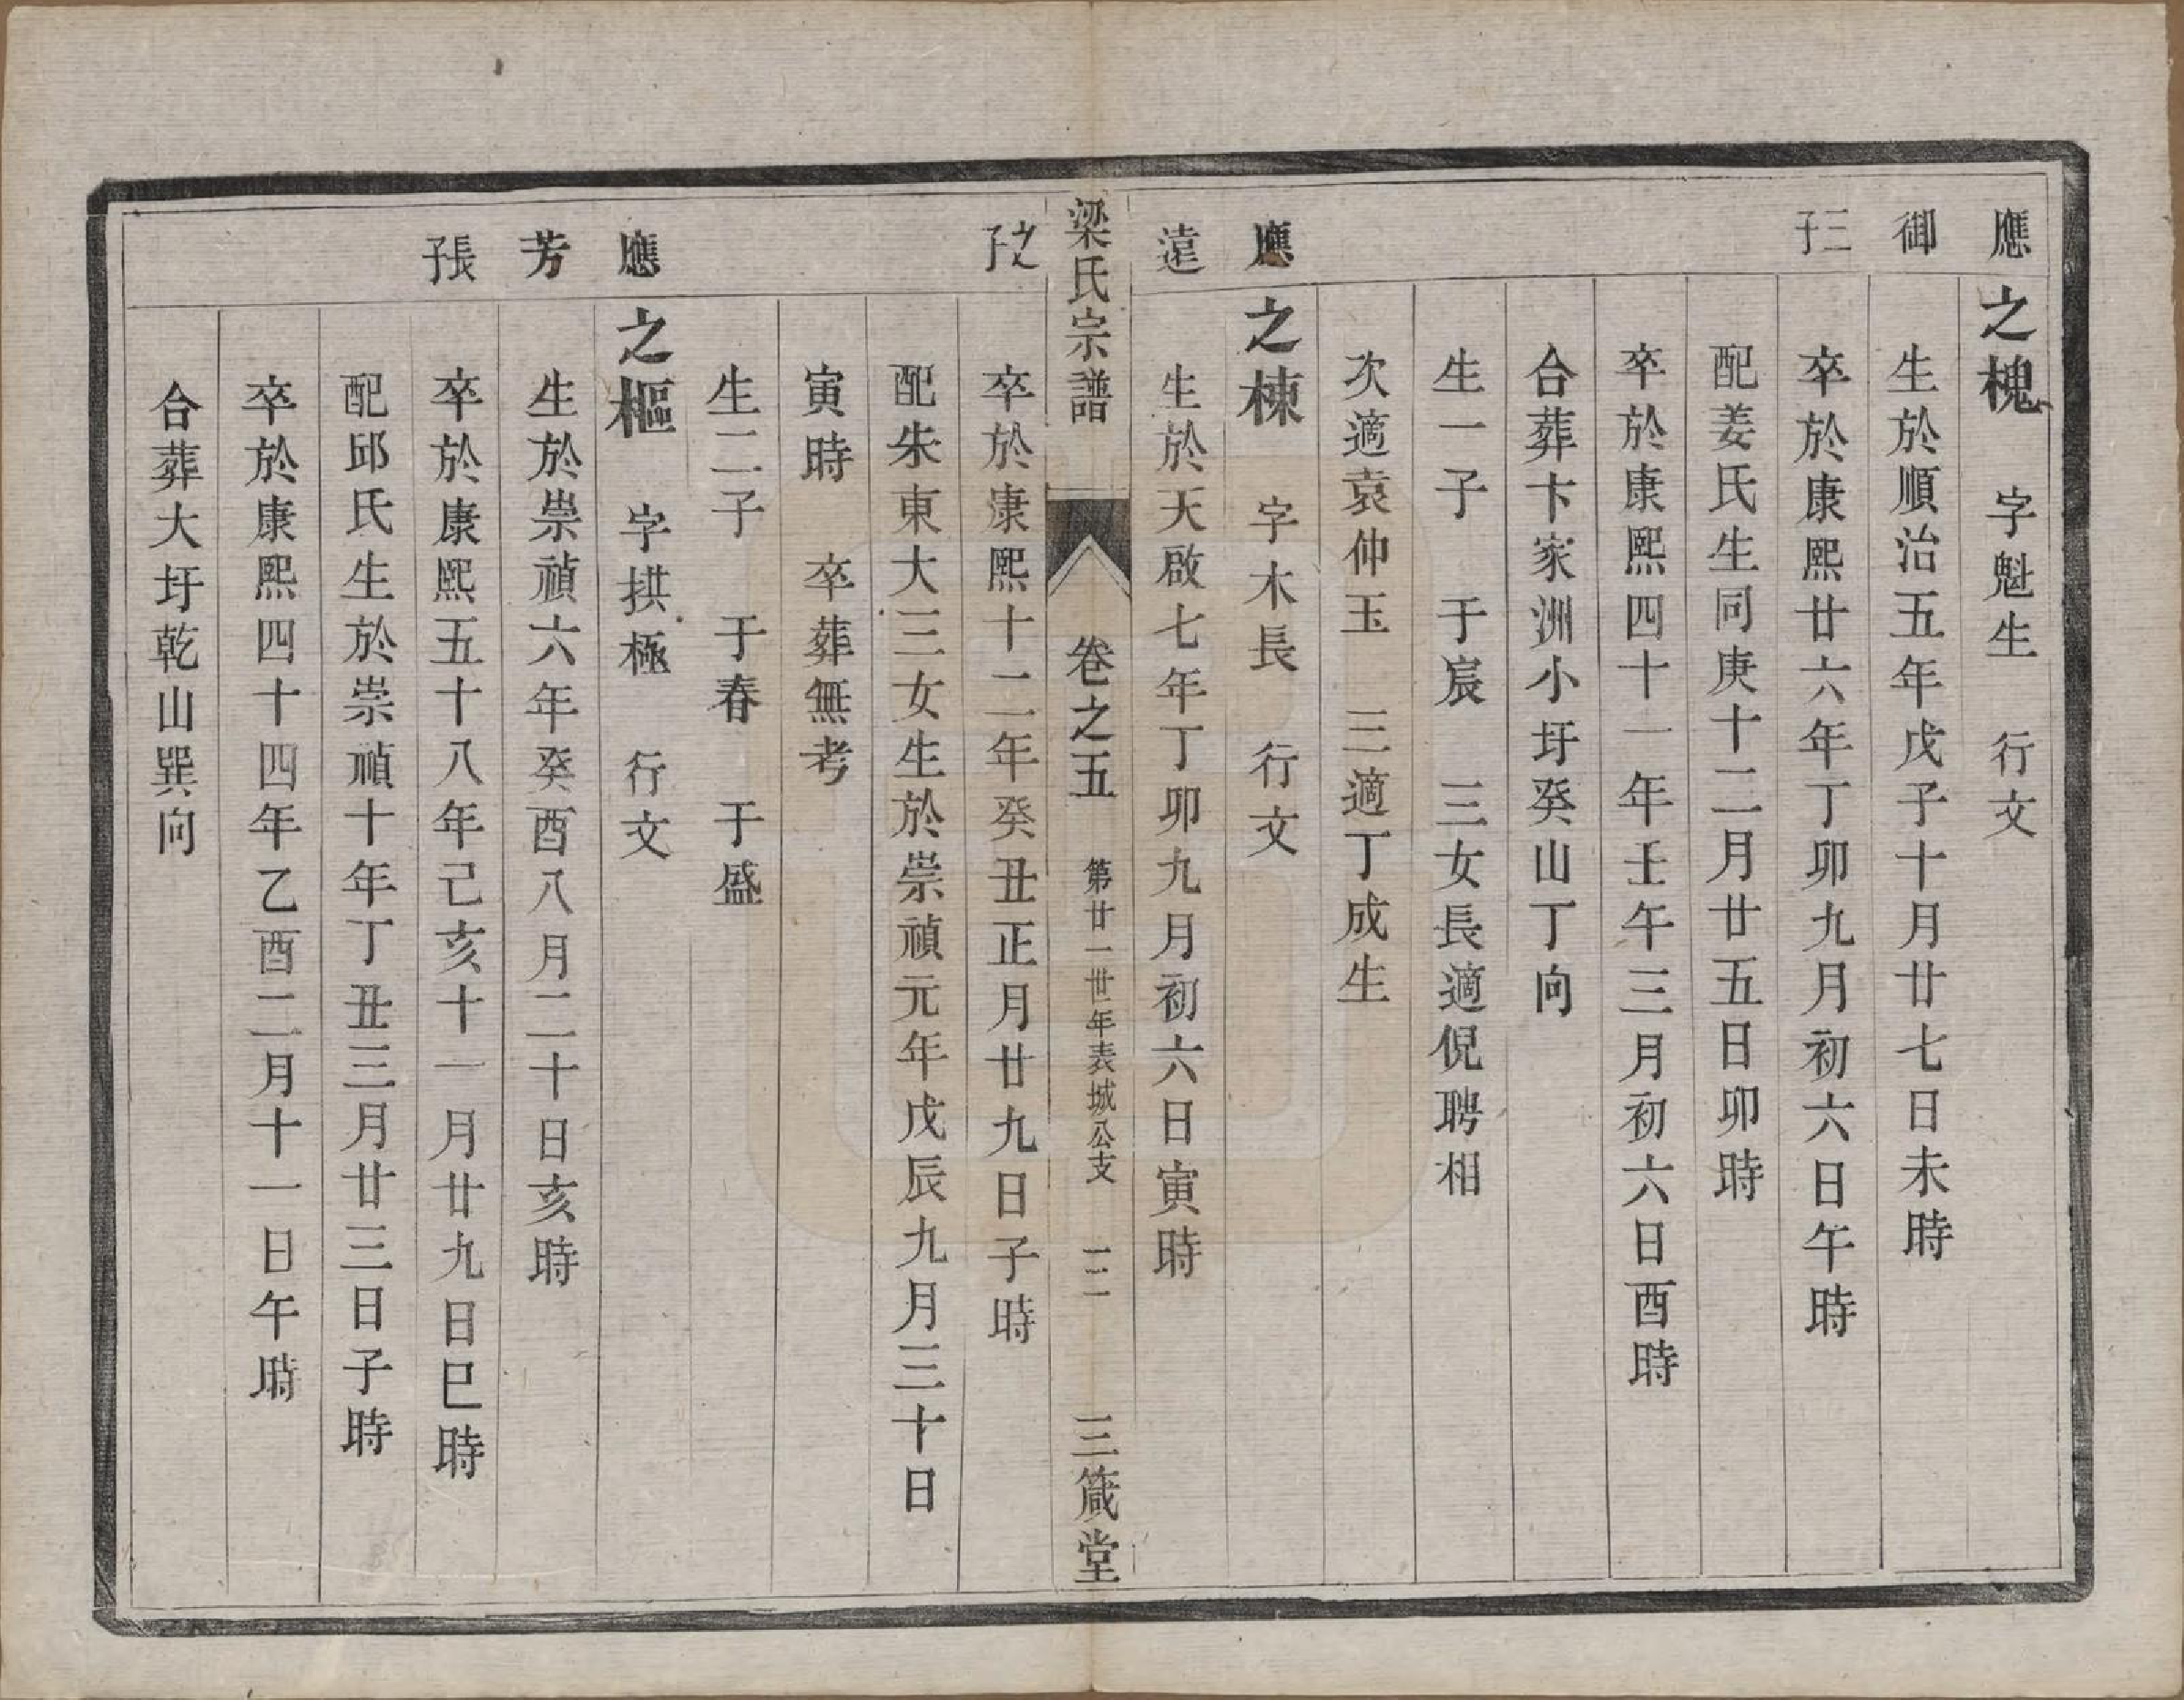 應
之槐　字魁生　行文
御
生於順治五年戊子十月廿七日未時
三子
卒於康熙廿六年丁卯九月初六日午時
配姜氏生同庚十二月廿五日卯時
卒於康熙四十一年壬午三月初六日酉時
合葬卞家洲小圩癸山丁向
生一子　于宸　三女長適倪聘相
次適袁仲玉　三適丁成生
應
之棟　字木長　行文
遠
生於天啟七年丁卯九月初六日寅時
梁氏宗譜　卷之五　第廿一世年表城公支　一二　三箴堂
之子
卒於康熙十二年癸丑正月廿九日子時
配朱東大三女生於崇禎元年戊辰九月三十日
寅時　卒葬無考
生二子　于春　于盛
應
之樞　字拱極　行文
芳
生於崇禎六年癸酉八月二十日亥時
長子
卒於康熙五十八年己亥十一月廿九日巳時
配邱氏生於崇禎十年丁丑三月廿三日子時
卒於康熙四十四年乙酉二月十一日午時
合葬大圩乾山巽向